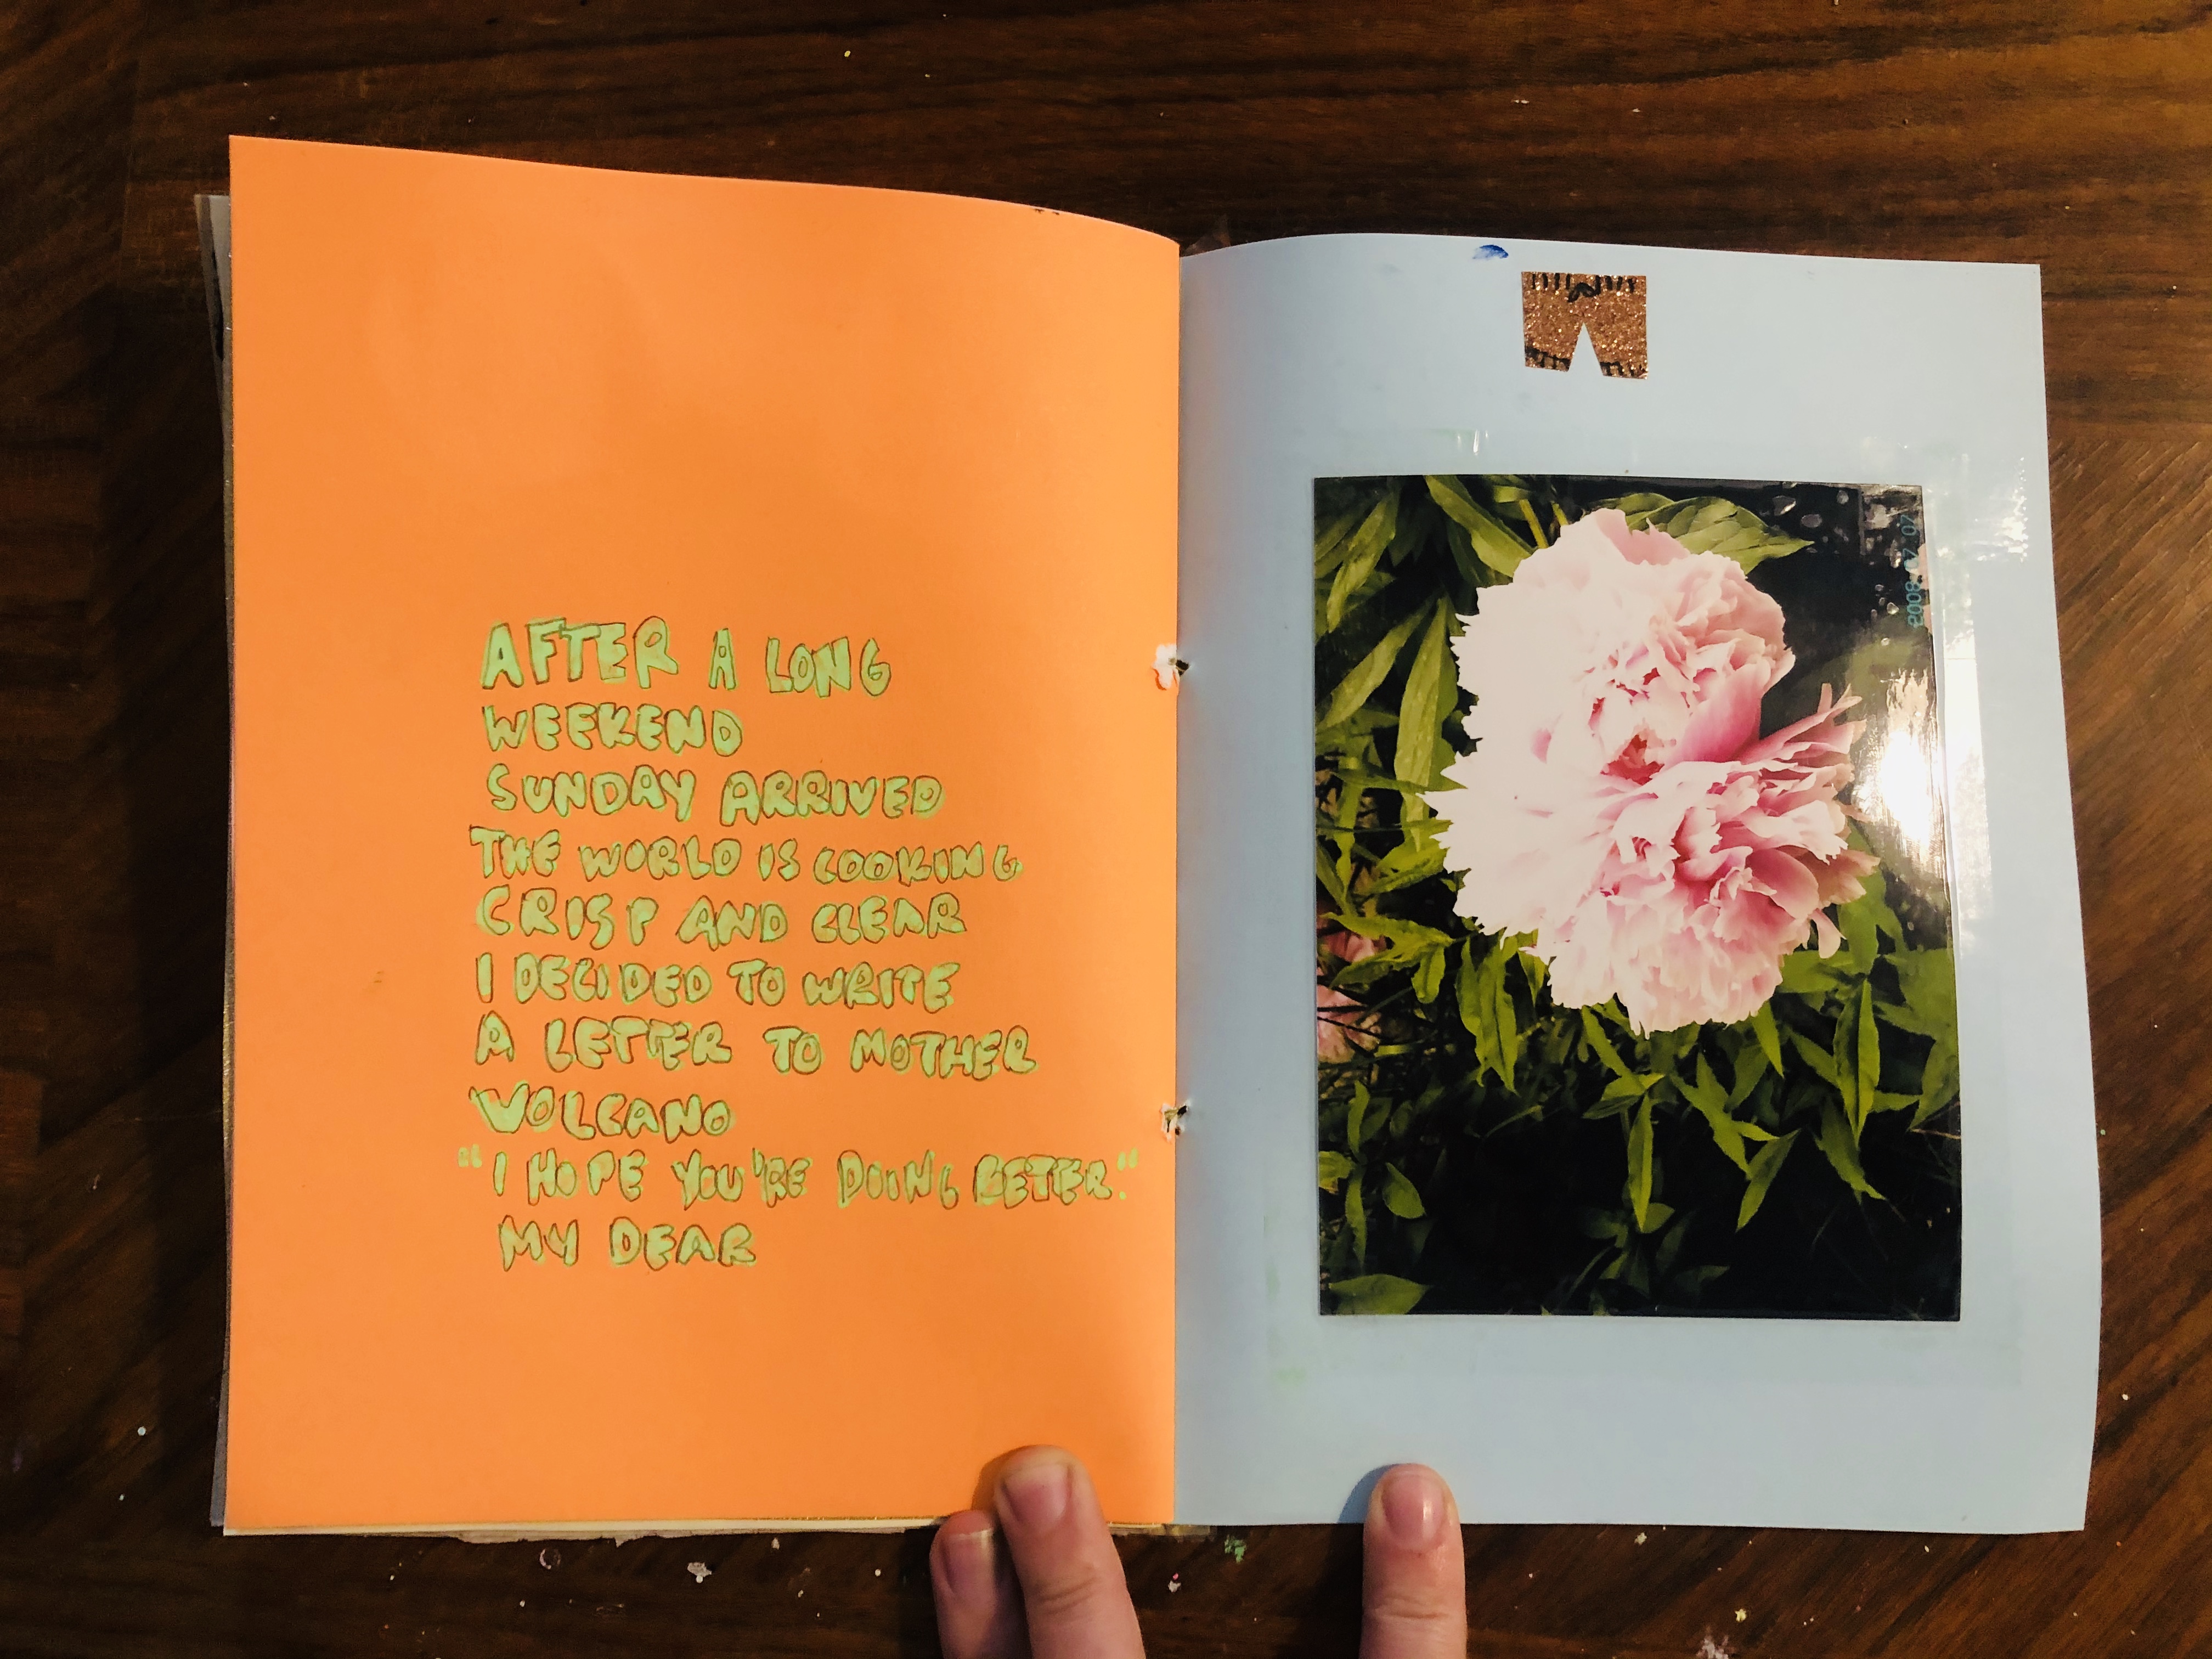 AFTER A LONG
WEEKEND
SUNDAY ARRIVED
THE WORLD IS COOKING
CRISP AND CLEAR
I DECIDED TO WRITE
A LETTER TO MOTHER
VOLCANO
"I HOPE YOU'RE DOING BETTER."
MY DEAR